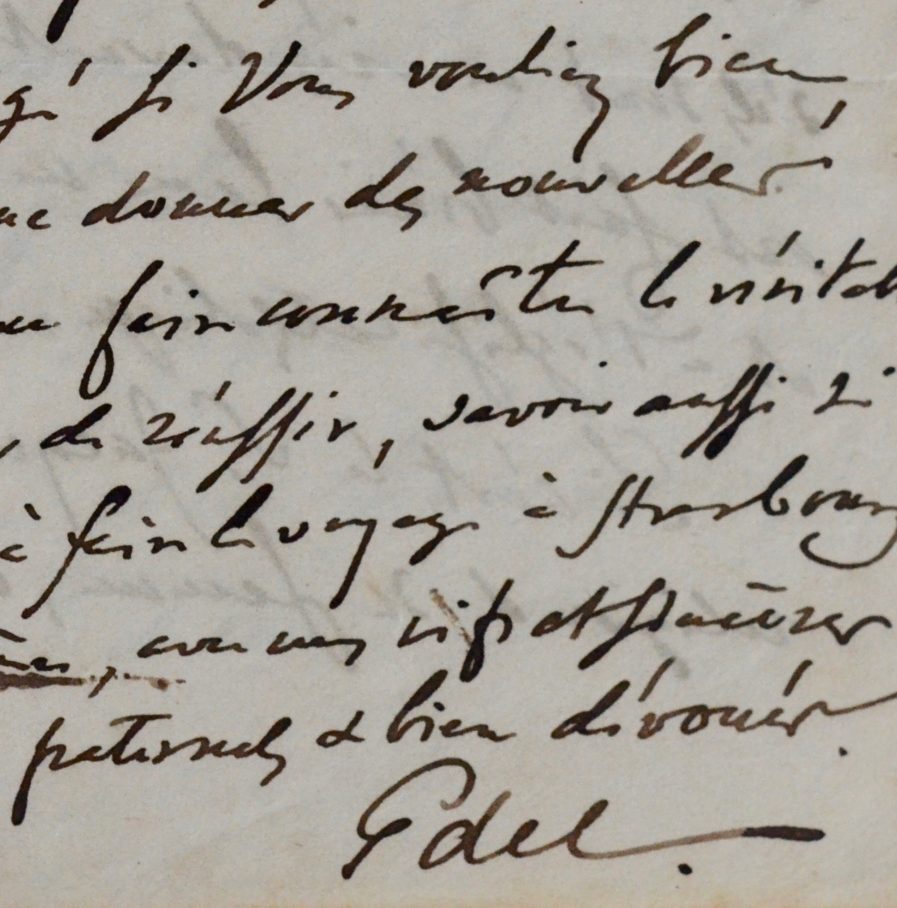 gé si Vous vouliez bien,
me donner des nouvelles
me faire connaître le véritab
, de réussir, savoir aussi si
à faire le voyage à Strasbourg
, avec mes vifs et sincères
paternels & bien dévoués.
Edel.